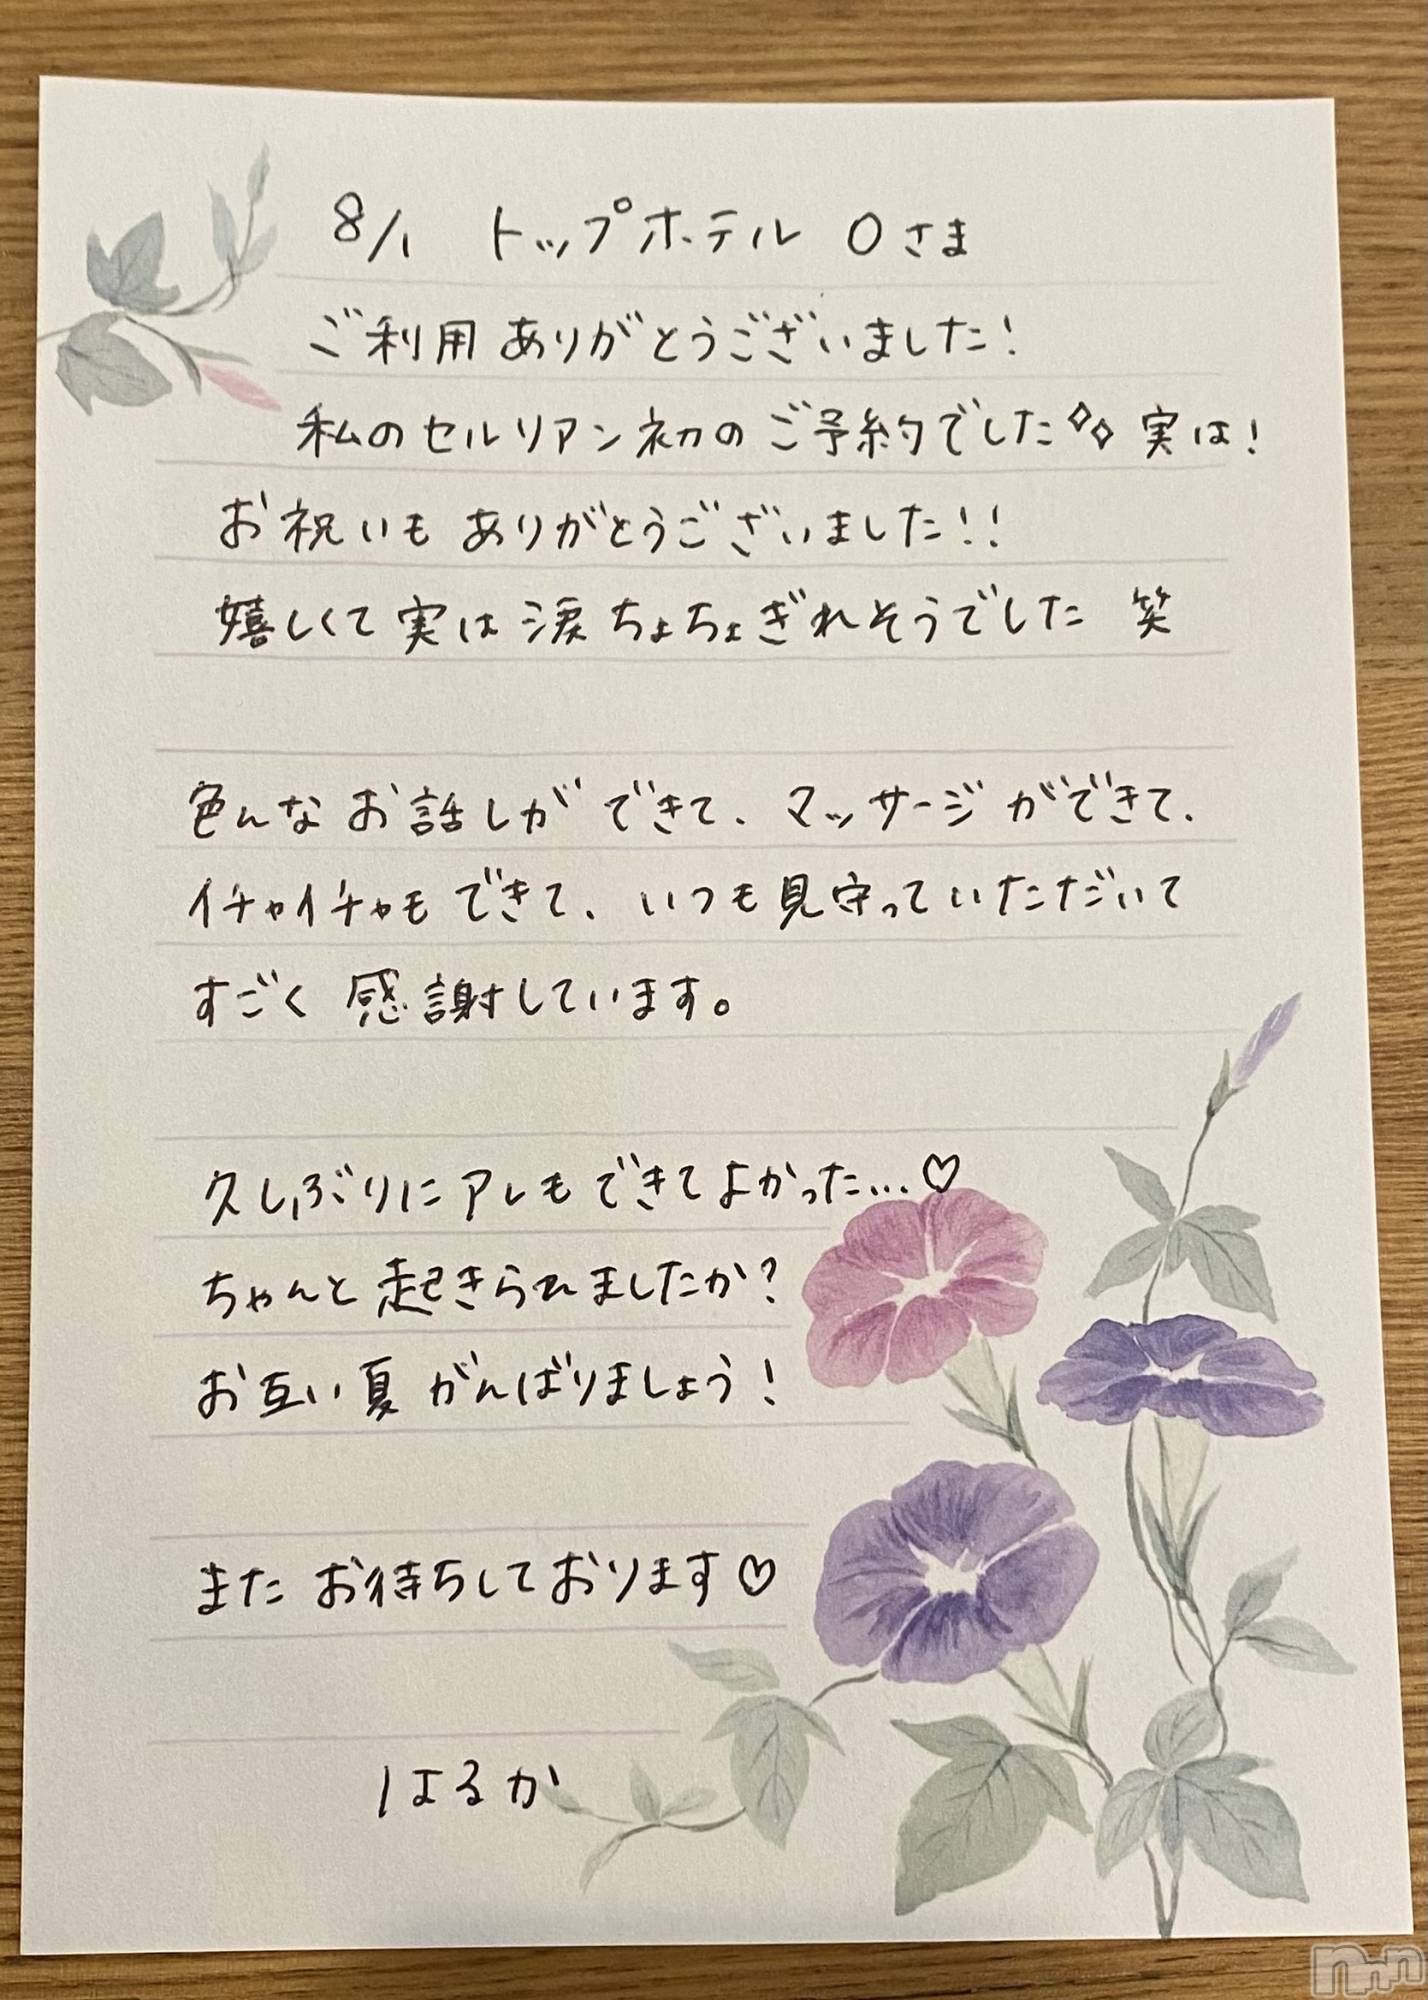 8/1 トップホテル Oさま
ご利用ありがとうございました!
私のセルリアン初のご予約でした 実は!
お祝いもありがとうございました!!
嬉しくて実は涙ちょちょぎれそうでした 笑
色んなお話しができて、マッサージができて、
イチャイチャもできて、いつも見守っていただいて
すごく感謝しています。
久しぶりにアレもできてよかった…♡
ちゃんと起きられましたか?
お互い夏がんばりましょう!
またお待ちしております♡
はるか
nnn